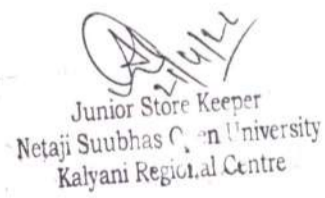 21/4/22
Junior Store Keeper
Netaji Suubhas Open University
Kalyani Regional Centre